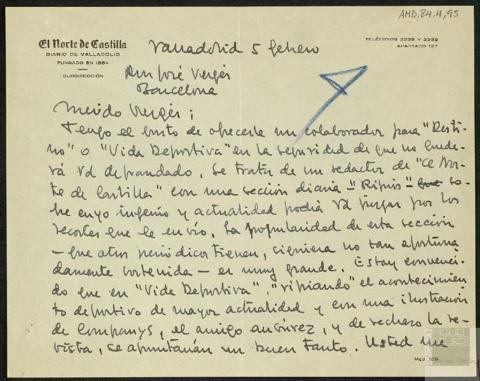 AMD, 84, 4, 95
El Norte de Castilla
DIARIO DE VALLADOLID
FUNDADO EN 1854
SUBDIRECCIÓN
TELÉFONOS 2238 Y 2239
APARTADO 127
Valladolid 5 febrero
Don José Vergés
Barcelona
Querido Vergés:
Tengo el gusto de ofrecerle un colaborador para "Desti-
no" o "Vida Deportiva" en la seguridad de que no queda-
rá Vd defraudado. Se trata de un redactor de "El Nor-
te de Castilla" con una sección diaria "Ripios" que so-
bre cuyo ingenio y actualidad podrá Vd juzgar por los
recortes que le envío. La popularidad de esta sección
- que otros periódicos tienen, siquiera no tan afortuna-
damente sostenida - es muy grande. Estoy convenci-
do que en "Vida Deportiva", "ripiando" el acontecimien-
to deportivo de mayor actualidad y con una ilustración
de Companys, el amigo, y de rechazo la re-
vista, se apuntarán un buen tanto. Usted me